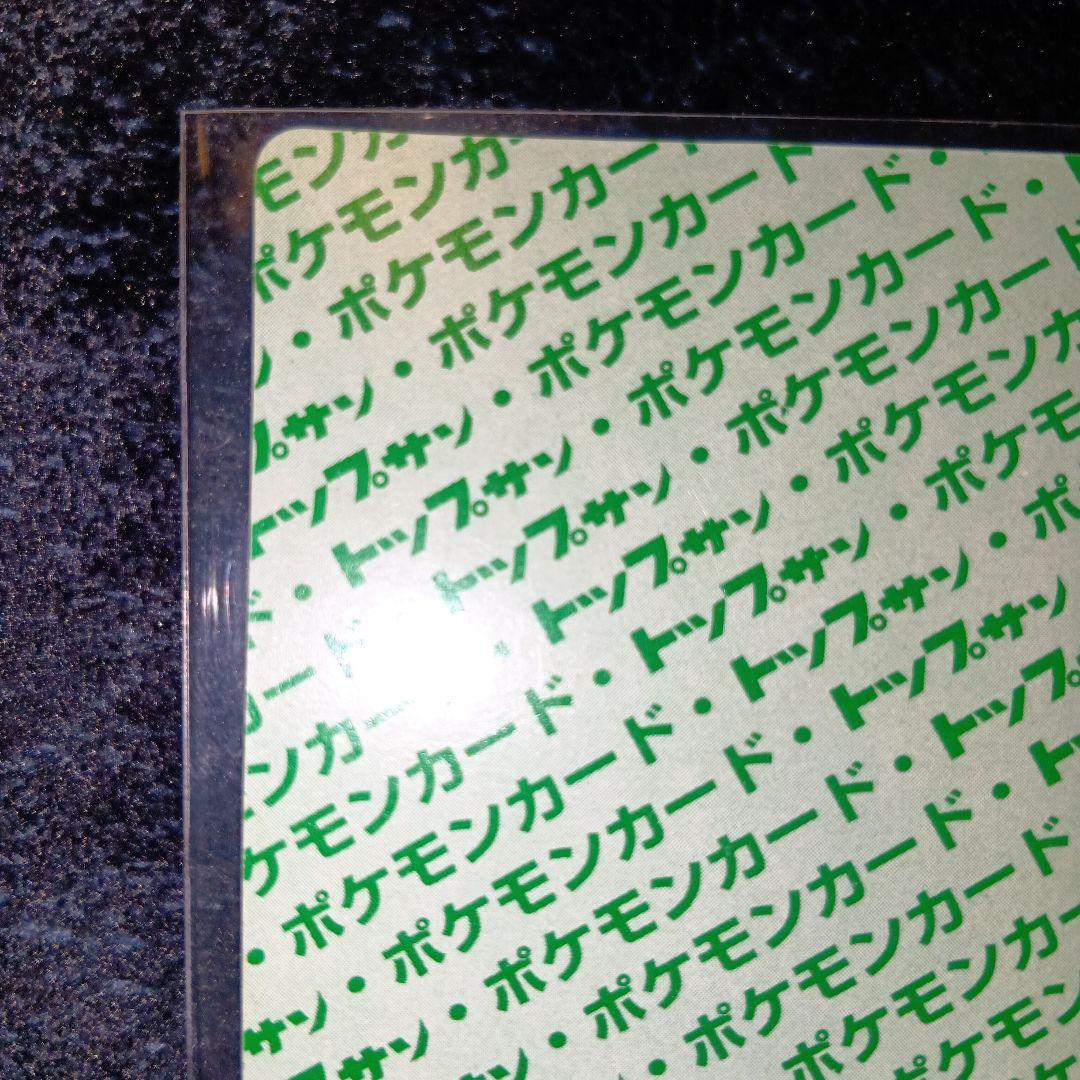 モンカ
ポケモンカ
ン・ポケモンカー
プサン・ポケモンカー
トップサン・ポケモンカード・
・トップサン・ポケモンカード・
ド・トップサン・ポケモンカード
カード・トップサン・ポケモンカー
ンカード・トップサン・ポケモンカ
ケモンカード・トップサン・ポケモ
・ポケモンカード・トップサン・ポ
サン・ポケモンカード・トップサン
トップサン・ポケモンカード・トップ
ン・ポケモンカード・ト
・ポケモンカード
ポケモンカー
ケモン